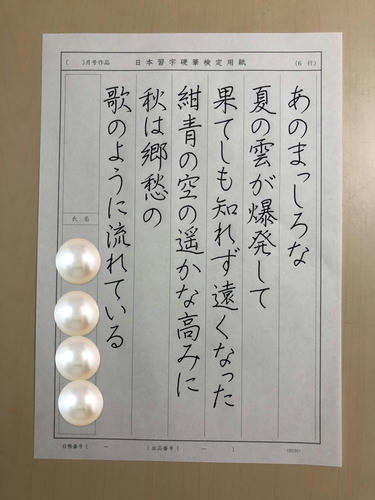 ( )月号作品 日本習字硬筆検定用紙 (6行)
あのまっしろな
夏の雲が爆発して
果てしも知れず遠くなった
紺青の空の遥かな高みに
秋は郷愁の
歌のように流れている
氏名
台帳番号( － ) 出品番号( － )